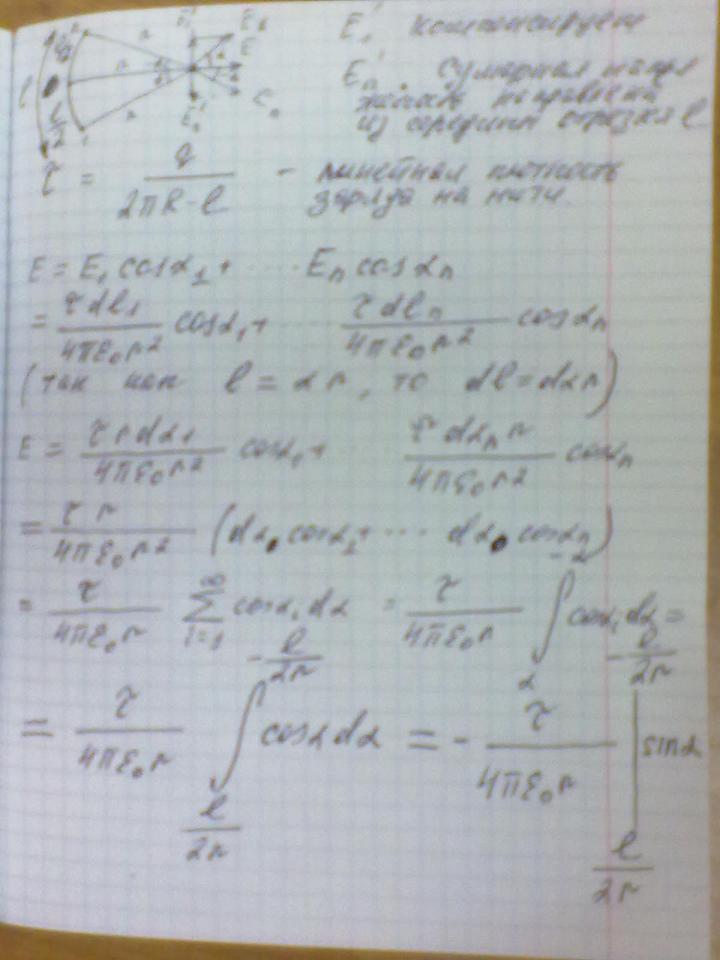 E₁' компенсирует
Eₙ' Сумарная напря
жённость направлена
из середины отрезка l
τ = q / (2πR - l) - линейная плотность
заряда на нити.
E = E₁ cosα₁ + ... Eₙ cosαₙ
= τdl₁ / (4πε₀r²) cosα₁ + ... τdlₙ / (4πε₀r²) cosαₙ
(так как l = αr, то dl = dαr)
E = τrdα₁ / (4πε₀r²) cosα₁ + τdαₙr / (4πε₀r²) cosₙ
= τr / (4πε₀r²) (dα cosα₁ + ... dα cosαₙ)
= τ / (4πε₀r) ∑_{i=1}^{∞} cosαᵢ dα = τ / (4πε₀r) ∫_{α}^{-α} cosαᵢ dα =
= τ / (4πε₀r) ∫_{l/2r}^{-l/2r} cosα dα = - τ / (4πε₀r) |_{l/2r}^{-l/2r} sinα